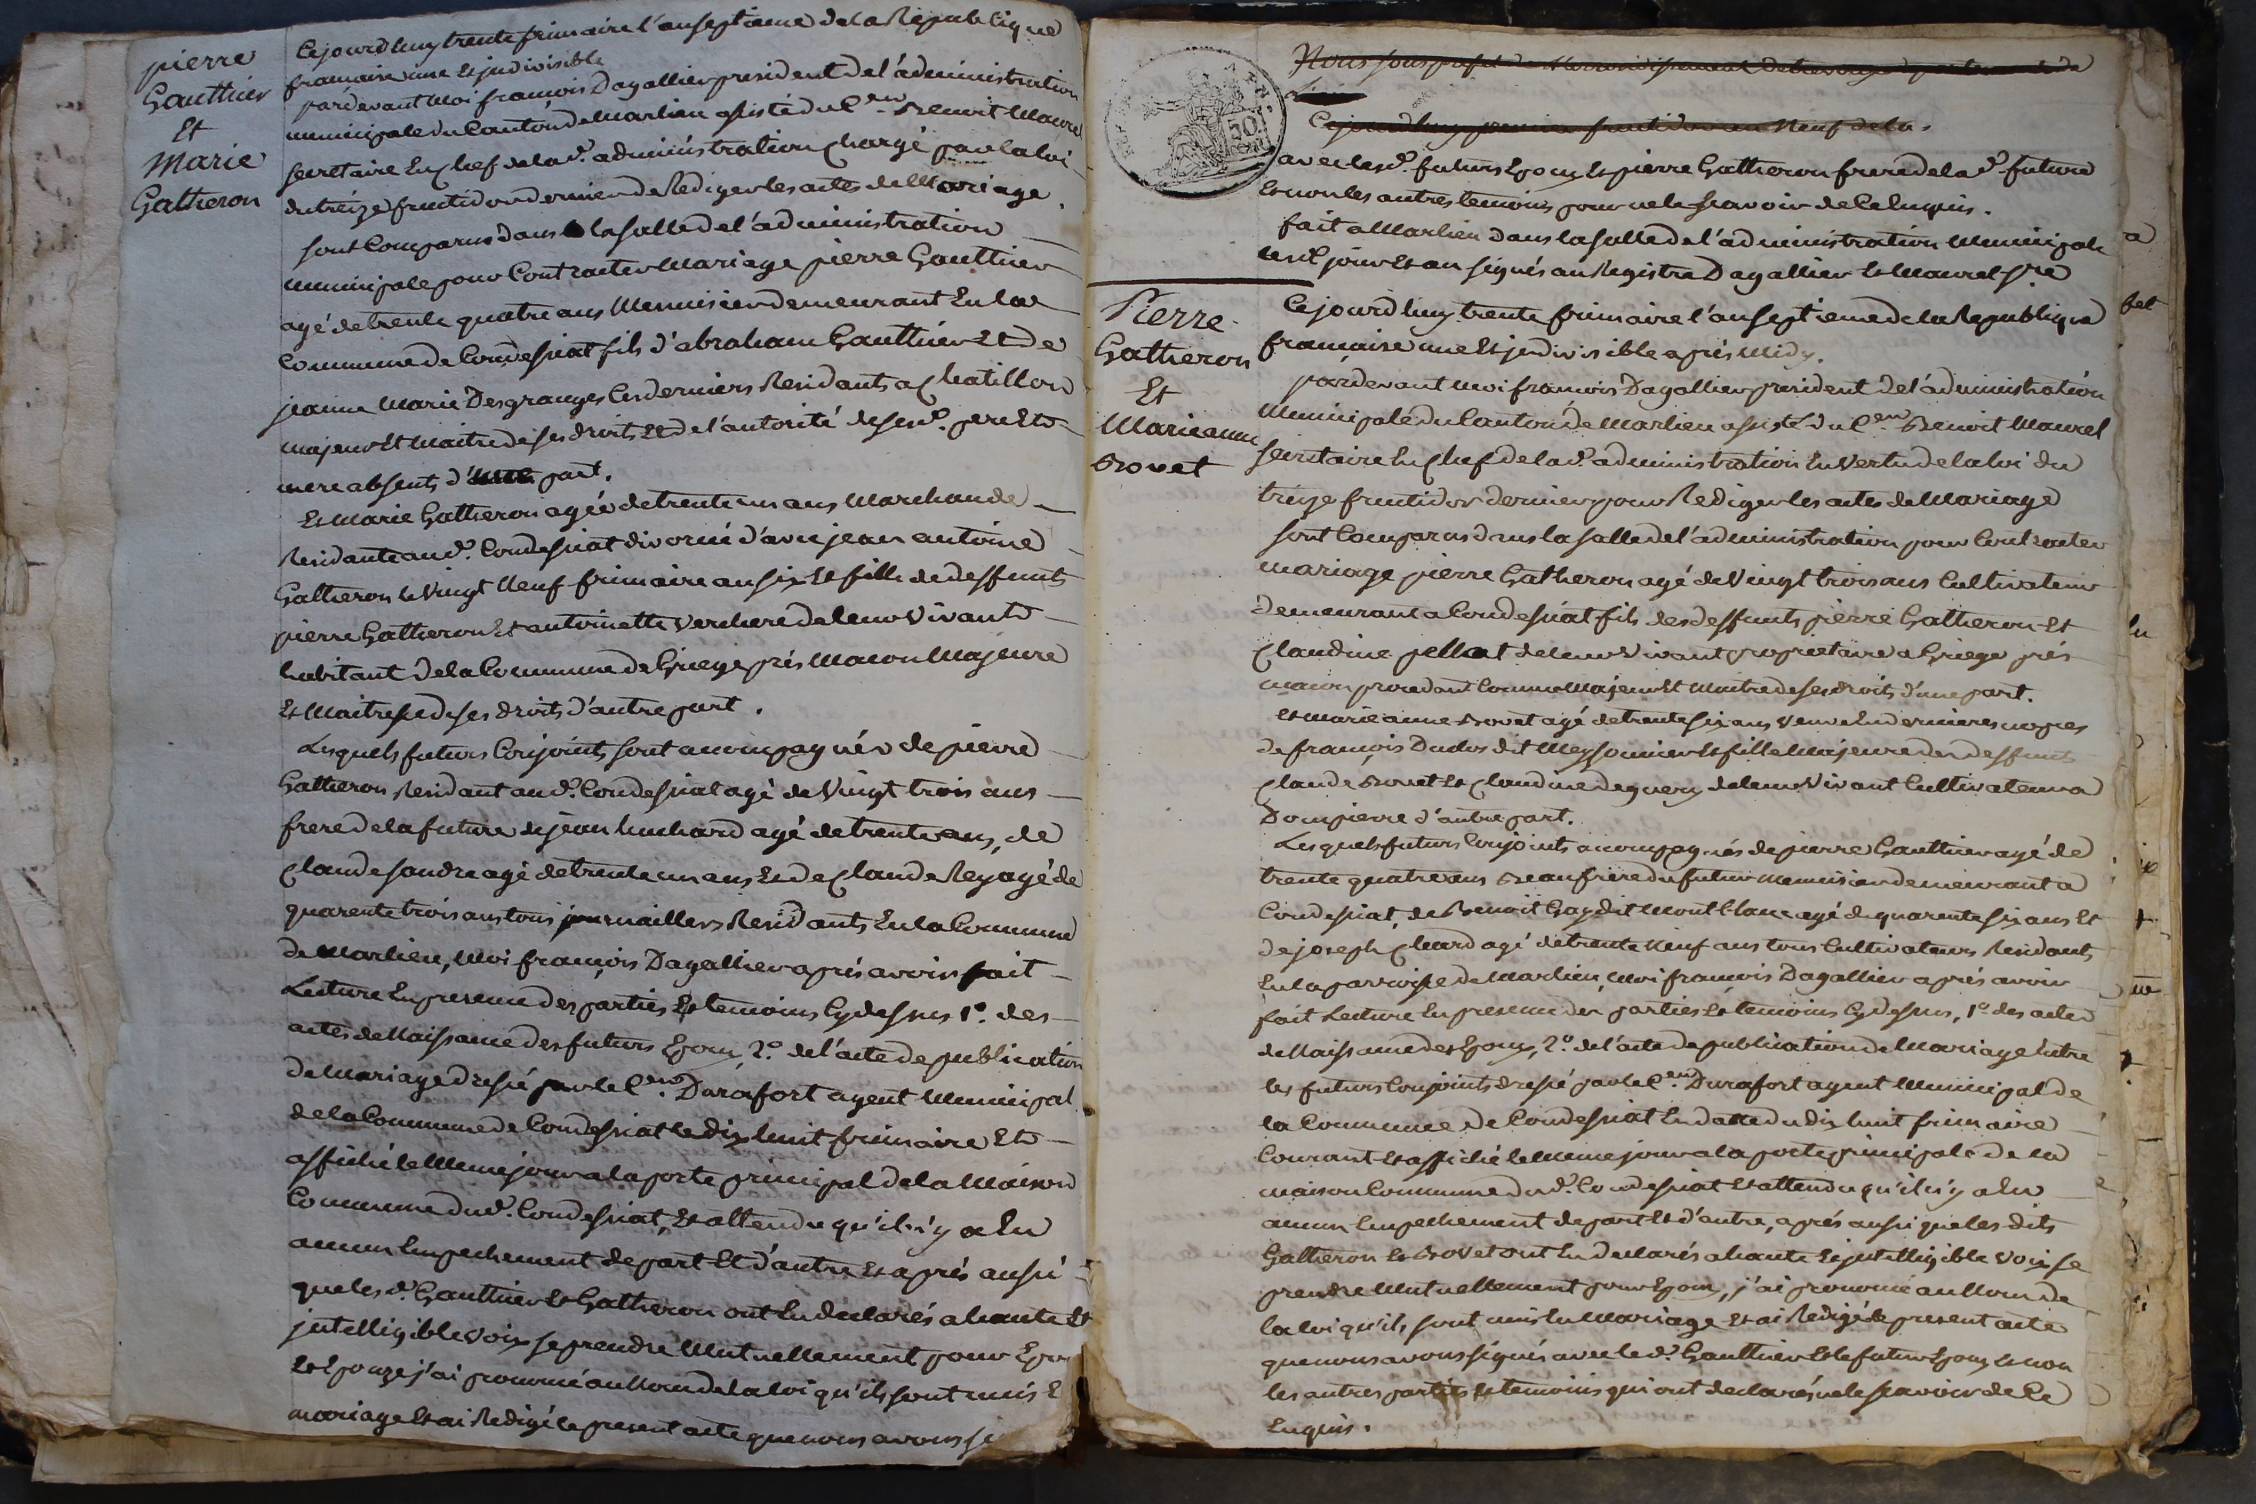 pierre
Gauthier
Et
Marie
Gatheron
Cejourd'huy trente frimaire l'an septieme de la Republique
francaise une et jndivisible
pardevant moi francois Dagallier president de l'administration
municipale du Canton de Marlieu assisté du Cen Benoit Maurel
secretaire En chef de lad. administration chargé par la loi
du treize fructidor dernier de Rediger les actes de Mariage.
sont Comparus dans la salle de l'administration
municipale pour Contracter Mariage pierre Gauthier
agé de trente quatre ans Menuisier demeurant En la
Commune de Condessiat fils d'abraham Gauthier Et de
jeanne Marie Desgranges Ces derniers Residants a chatillon
majeur Et Maitre de ses droits Et de l'autorité de sesd. pere Et
mere absents d'une part.
Et Marie Gatheron agée de trente un ans Marchande
Residante aud. Condessiat divorcé d'avec jean antoine
Gatheron le vingt Neuf frimaire an six Et fille de deffunts
pierre Gatheron Et antoinette verchere de leur vivant
habitant de la Commune de Griege prés Macon Majeure
Et Maitresse de ses droits d'autre part.
Lesquels futurs Conjoints sont accompagnés de pierre
Gatheron Residant aud. Condessiat agé de vingt trois ans
frere de la future de jean huchard agé de trente ans, de
claude sandre agé de trente un ans Et de claude Rey agé de
quarente trois ans tous journaillers Residants En la Commune
de Marlieu, Moi françois Dagallier aprés avoir fait
Lecture En presence des parties Et temoins Cy dessus 1o. des
actes de Naissance des futurs Epoux, 2o. de l'acte de publication
de Mariage dressé par le Cen. Durafort agent Municipal
de la Commune de Condessiat le dix huit frimaire Et
affiché le Meme jour a la porte principal de la Maison
Commune dud. Condessiat, Et attendu qu'il n'y a Eu
aucun Empechement de part Et d'autre Et aprés aussi
que lesd. Gauthier Et Gatheron ont Eu declarés a haute Et
jntelligible voix se prendre Mutuellement pour Epou
Et Epouze j'ai prononcé au Nom de la loi qu'ils sont unis E
mariage Et ai Redigé le present acte que nous avons si
Nous sous prefet de l'arrondissement de trevoux departement de
Cejourd'huy premier fructidor an Neuf de la
avec lesd. futurs Epoux Et pierre Gatheron frere de lad. future
Et non les autres temoins pour ne le scavoir de Ce Enquis.
fait a Marlieu dans la salle de l'administration Municipale
lesd. jour Et an signés au Registre Dagallier Et Maurel sre
Pierre
Gatheron
Et
Marieanne
Bovet
Cejourd'huy trente frimaire l'an septieme de la Republique
francaise une Et jndivisible aprés Midy.
pardevant moi francois Dagallier president de l'administration
Municipale du Canton de Marlieu assisté du Cen Benoit Maurel
secretaire En chef de lad. administration En vertu de la loi du
treize fructidor dernier pour Rediger les actes de Mariage
sont Comparus dans la salle de l'administration pour Contracter
mariage pierre Gatheron agé de vingt trois ans Cultivateur
demeurant a Condessiat fils des deffunts pierre Gatheron Et
claudine pellat de leur vivant proprietaire a Griege prés
macon procedant Comme Majeur Et Maitre de ses droits d'une part.
Et Marie anne Bovet agé de trente six ans veuve En dernieres nopces
de françois Duclos dit Meyssonnier Et fille Majeure des deffunts
claude Bovet Et claudine deguery de leur vivant Cultivateur a
Dompierre d'autre part.
Lesquels futurs Conjoints accompagnés de pierre Gauthier agé de
trente quatre ans Beaufrere du futur Menuisier demeurant a
Condessiat, de Benoit Gay dit Montblanc agé de quarente six ans Et
de joseph chard agé de trente Neuf ans tous Cultivateurs Residants
En la parroisse de Marlieu, Moi francois Dagallier aprés avoir
fait Lecture En presence des parties Et temoins Cy dessus, 1o des actes
de Naissance des Epoux, 2o. de l'acte de publication de Mariage Entre
les futurs Conjoints dressé par le Cen. Durafort agent Municipal de
la Commune de Condessiat En datte du dix huit frimaire
Courant Et affiché le Meme jour a la porte principale de la
maison Commune dud. Condessiat Et attendu qu'il n'y a Eu
aucun Empechement de part Et d'autre, aprés aussi que les dits
Gatheron Et Bovet ont Eu declarés a haute Et jntelligible voix se
prendre Mutuellement pour Epoux, j'ai prononcé au Nom de
la loi qu'ils sont unis En Mariage Et ai Redigé le present acte
que nous avons signés avec led. Gauthier Et le futur Epoux Et non
les autres parties Et temoins qui ont declarés ne le scavoir de Ce
Enquis.